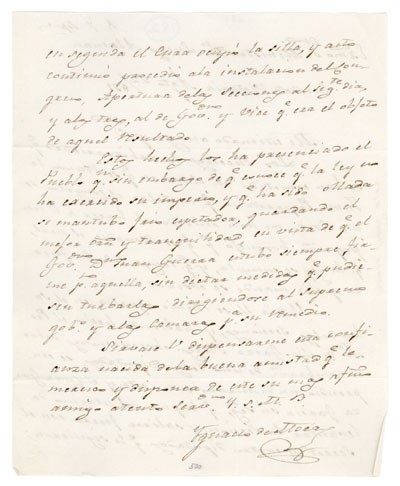 en segunda el Cura ocupo la silla, y acto
continuo procedio ala instalacion del Con
greso. Apertura delas Secciones al segte dia,
y alos tres, al de Govor y Vice qe era el objeto
de aquel resultado.
Estos hechos los ha presenciado el
Pueblo qn sin embargo de qe conoce qe la ley no
ha exercido su imperio, y qe ha sido ollada
se mantubo frio espetador, guardando el
mejor orn y tranquilidad en vista de qe el
Govor Dn Juan Guerra estubo siempre fir
me pr aquella, sin dictar medidas qe pudie
sen turbarla dirigiendose al Supremo
gobno y alas Camaras pa su remedio.
Sirvase V. dispensarme esta confi
anza nacida dela buena amistad qe le
meresco y disponer de este su muy afmo
amigo atento Servor Q. S. M. B.
Ygnacio de
520